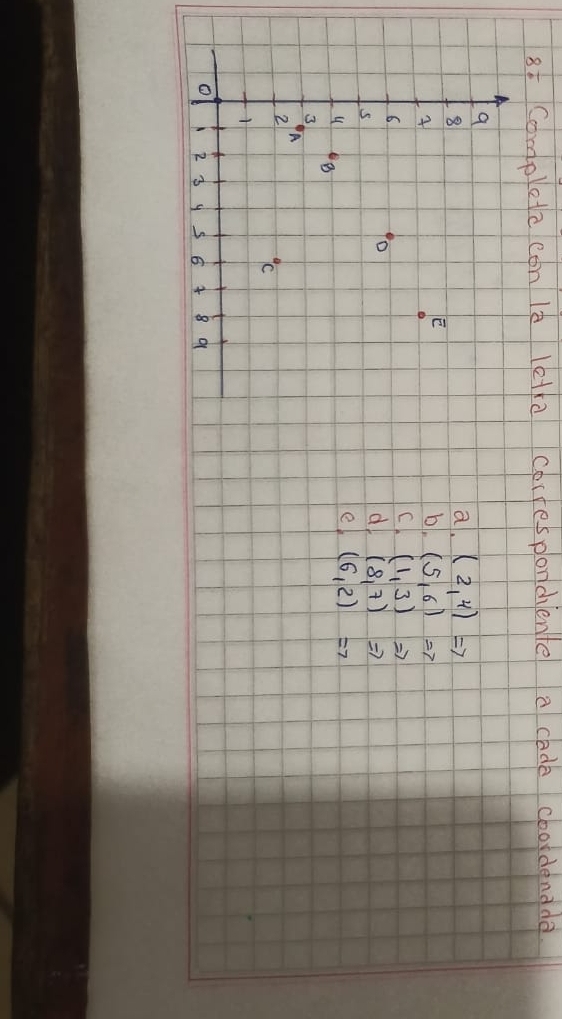 8: Completa con la letra correspondiente a cada coordenada.
9
8
7
6
5
4
3
2
1
0 1 2 3 4 5 6 7 8 9
A
B
C
D
E
a. (2,4) =>
b. (5,6) =>
c. (1,3) =>
d. (8,7) =>
e. (6,2) =>